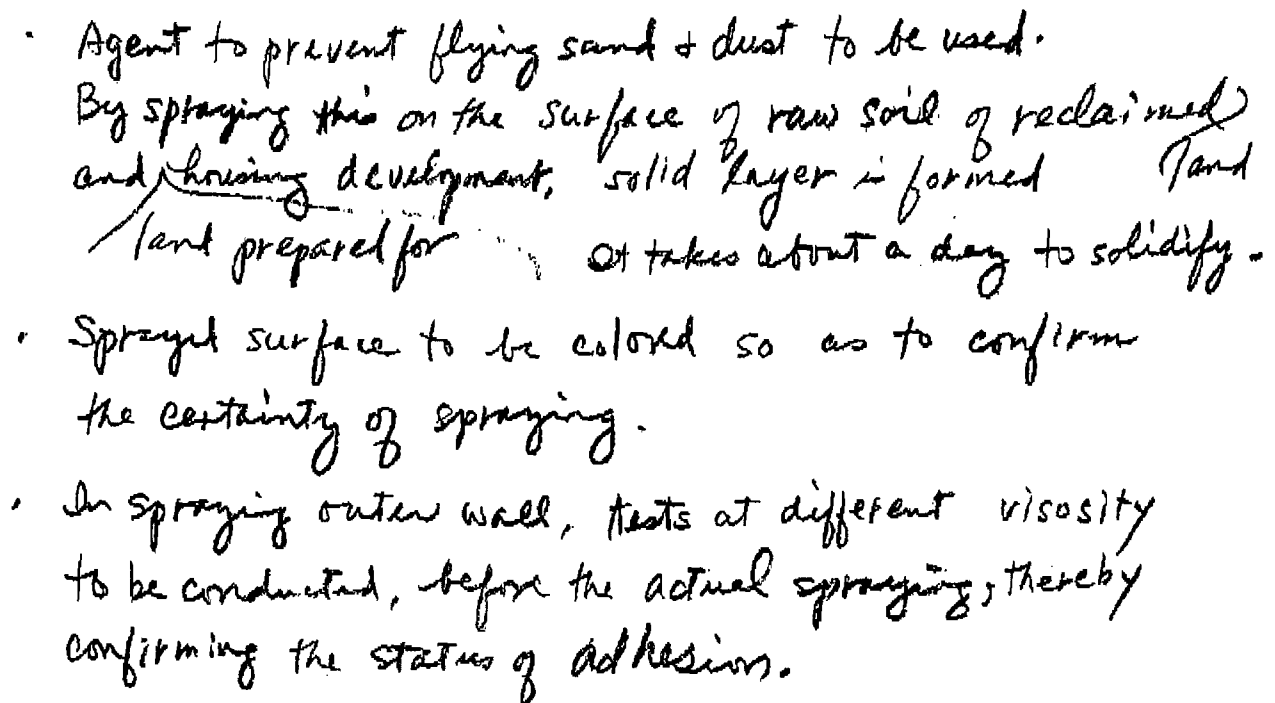 · Agent to prevent flying sand & dust to be used.
By spraying this on the surface of raw soil of reclaimed land
and land prepared for housing development, solid layer is formed
It takes about a day to solidify.
· Sprayed surface to be colored so as to confirm
the certainty of spraying.
· In spraying outer wall, tests at different visosity
to be conducted, before the actual spraying, thereby
confirming the status of adhesion.